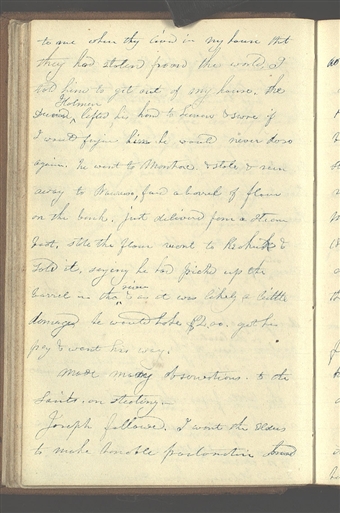 to me when they lived in my house that
they had stolen from the world. I
told him to get out of my house. he
Holman
David lifted his hand to heaven & swore if
I would forgive him he would never do so
again. he went to Montrose & stole & run
away to Warsaw, found a barrel of flour
on the bank. Just delivered from a steam
boat, stole the flour went to Keokuk &
Sold it, saying he had picked up the
river
barrel in the it was likely a little
damaged he would take $2.00. got his
pay & went his way.
Made many observations to the
Saints, on stealing
Joseph followed. I want the Elders
to make honorable proclamation